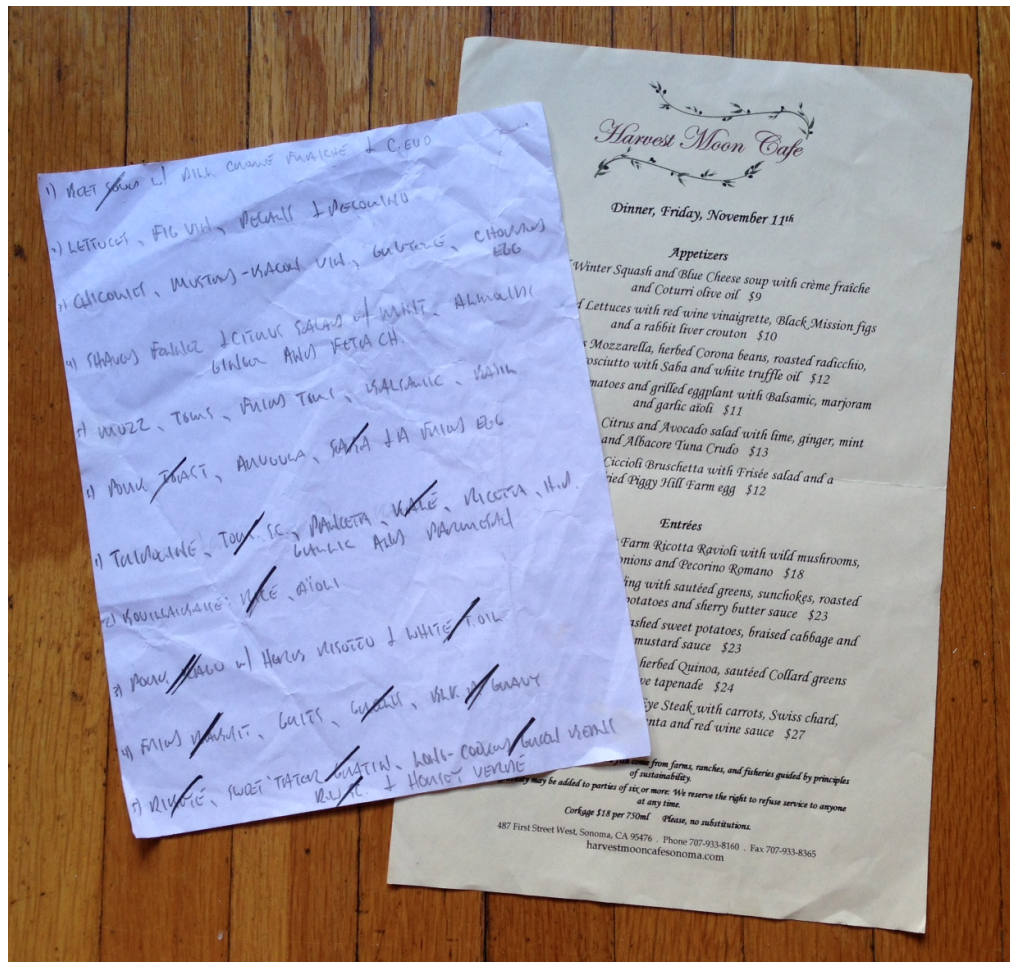 1) BEET SOUP w/ DILL CREME FRAICHE + C.EVO
2) LETTUCES, FIG VIN, PECANS + PECORINO
3) CHICORIES, MUSTARD-BACON VIN, GRUYERE, CHOPPED
EGG
4) SHAVED FENNEL + CITRUS SALAD w/ MINT, ALMONDS
GINGER AND FETA CH.
5) MOZZ, TOMS, FRIED TOMS, BALSAMIC, BASIL
6) PORK TOAST, ARUGULA, SABA + A FRIED EGG
1) TOM SC, PANCETTA, KALE, RICOTTA, H.M.
GARLIC AND PARMESAN
2) BOUILLABAISSE: RICE, AÏOLI
3) PORK RAGU w/ HERBED RISOTTO + WHITE T.OIL
4) FRIED GRITS, GREENS, BLK GRAVY
5) SWEET TATER GRATIN, LONG-COOKED GREEN BEANS
+ HORSET VERDE
Harvest Moon Cafe
Dinner, Friday, November 11th
Appetizers
Winter Squash and Blue Cheese soup with crème fraîche
and Coturri olive oil $9
Lettuces with red wine vinaigrette, Black Mission figs
and a rabbit liver crouton $10
Mozzarella, herbed Corona beans, roasted radicchio,
osciutto with Saba and white truffle oil $12
matoes and grilled eggplant with Balsamic, marjoram
and garlic aïoli $11
Citrus and Avocado salad with lime, ginger, mint
and Albacore Tuna Crudo $13
Ciccioli Bruschetta with Frisée salad and a
ried Piggy Hill Farm egg $12
Entrées
Farm Ricotta Ravioli with wild mushrooms,
onions and Pecorino Romano $18
ing with sautéed greens, sunchokes, roasted
potatoes and sherry butter sauce $23
ashed sweet potatoes, braised cabbage and
mustard sauce $23
herbed Quinoa, sautéed Collard greens
ve tapenade $24
Eye Steak with carrots, Swiss chard,
enta and red wine sauce $27
come from farms, ranches, and fisheries guided by principles
of sustainability.
may be added to parties of six or more. We reserve the right to refuse service to anyone
at any time.
Corkage $18 per 750ml Please, no substitutions.
487 First Street West, Sonoma, CA 95476 . Phone 707-933-8160 . Fax 707-933-8365
harvestmooncafesonoma.com